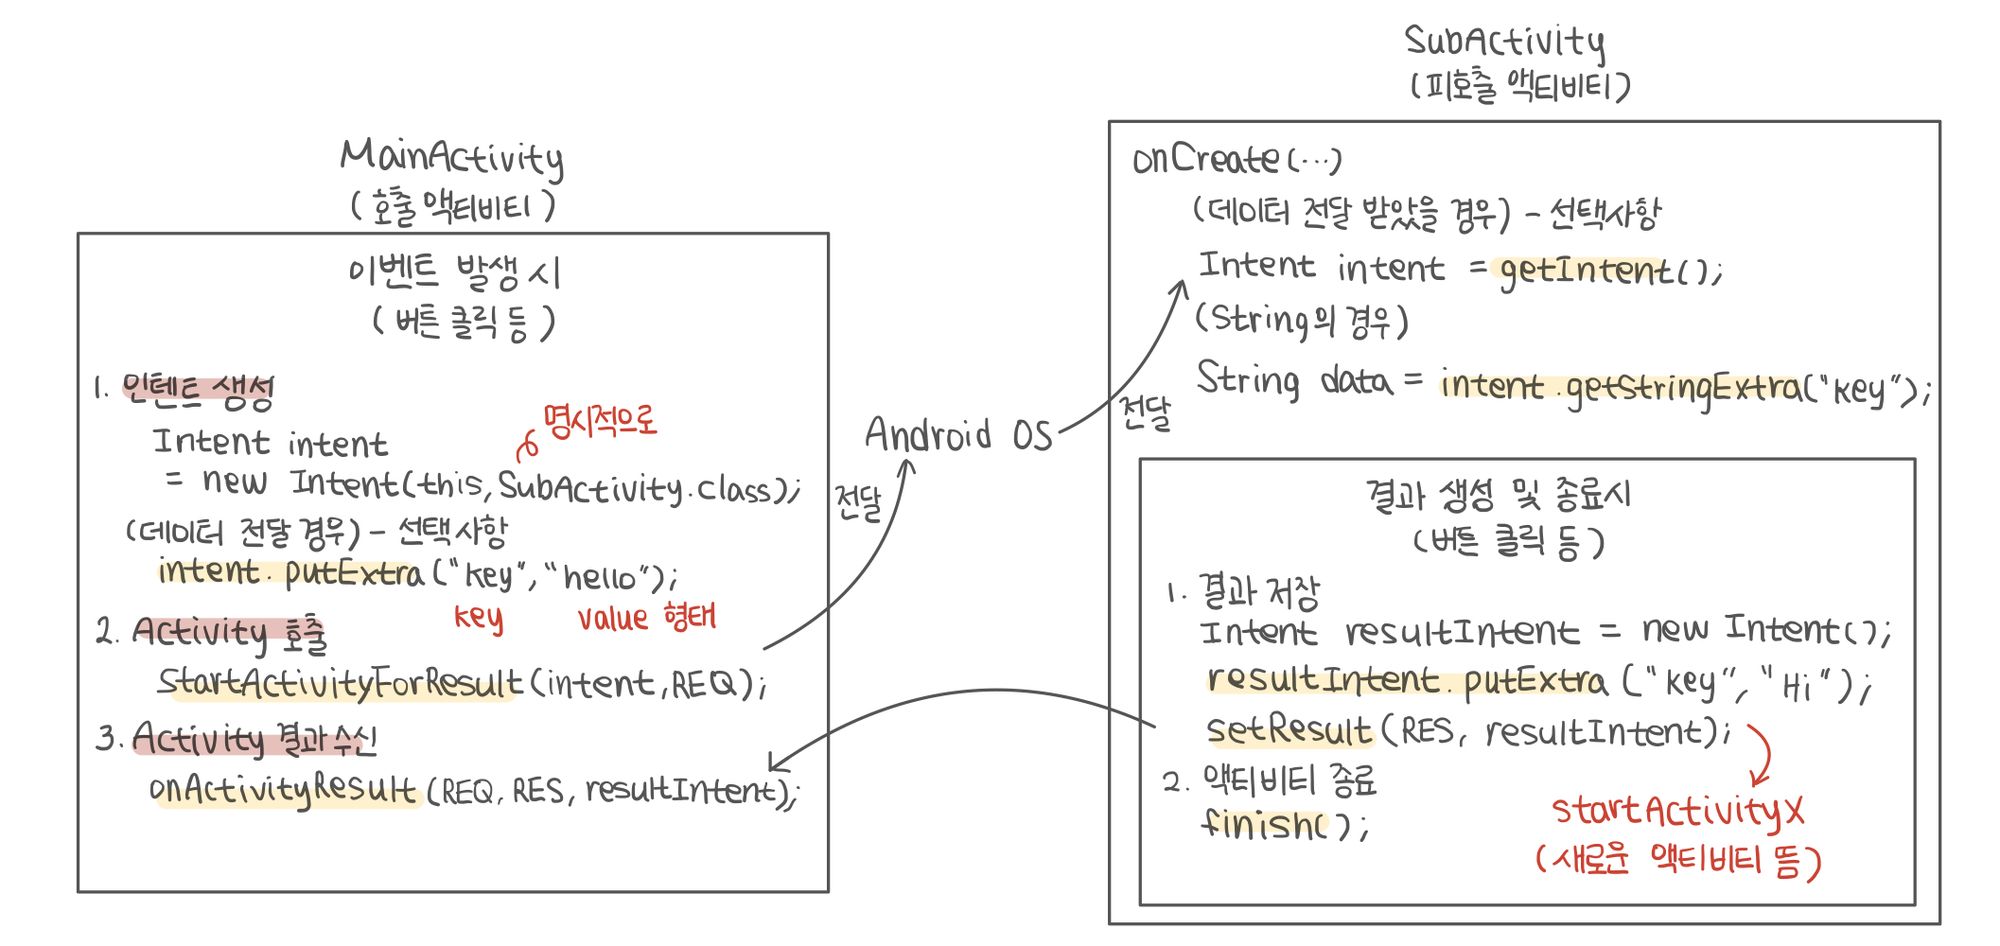 MainActivity
(호출 액티비티)
이벤트 발생 시
(버튼 클릭 등)
1. 인텐트 생성
Intent intent
명시적으로
= new Intent(this, SubActivity.class);
(데이터 전달 경우) - 선택사항
intent.putExtra("key", "hello");
key value 형태
2. Activity 호출
startActivityForResult(intent, REQ);
3. Activity 결과 수신
onActivityResult(REQ, RES, resultIntent);
전달
Android OS
전달
SubActivity
(피호출 액티비티)
onCreate(...)
(데이터 전달 받았을 경우) - 선택사항
Intent intent = getIntent();
(String의 경우)
String data = intent.getStringExtra("key");
결과 생성 및 종료시
(버튼 클릭 등)
1. 결과 저장
Intent resultIntent = new Intent();
resultIntent.putExtra("key", "Hi");
setResult(RES, resultIntent);
2. 액티비티 종료
finish();
startActivityX
(새로운 액티비티 뜸)